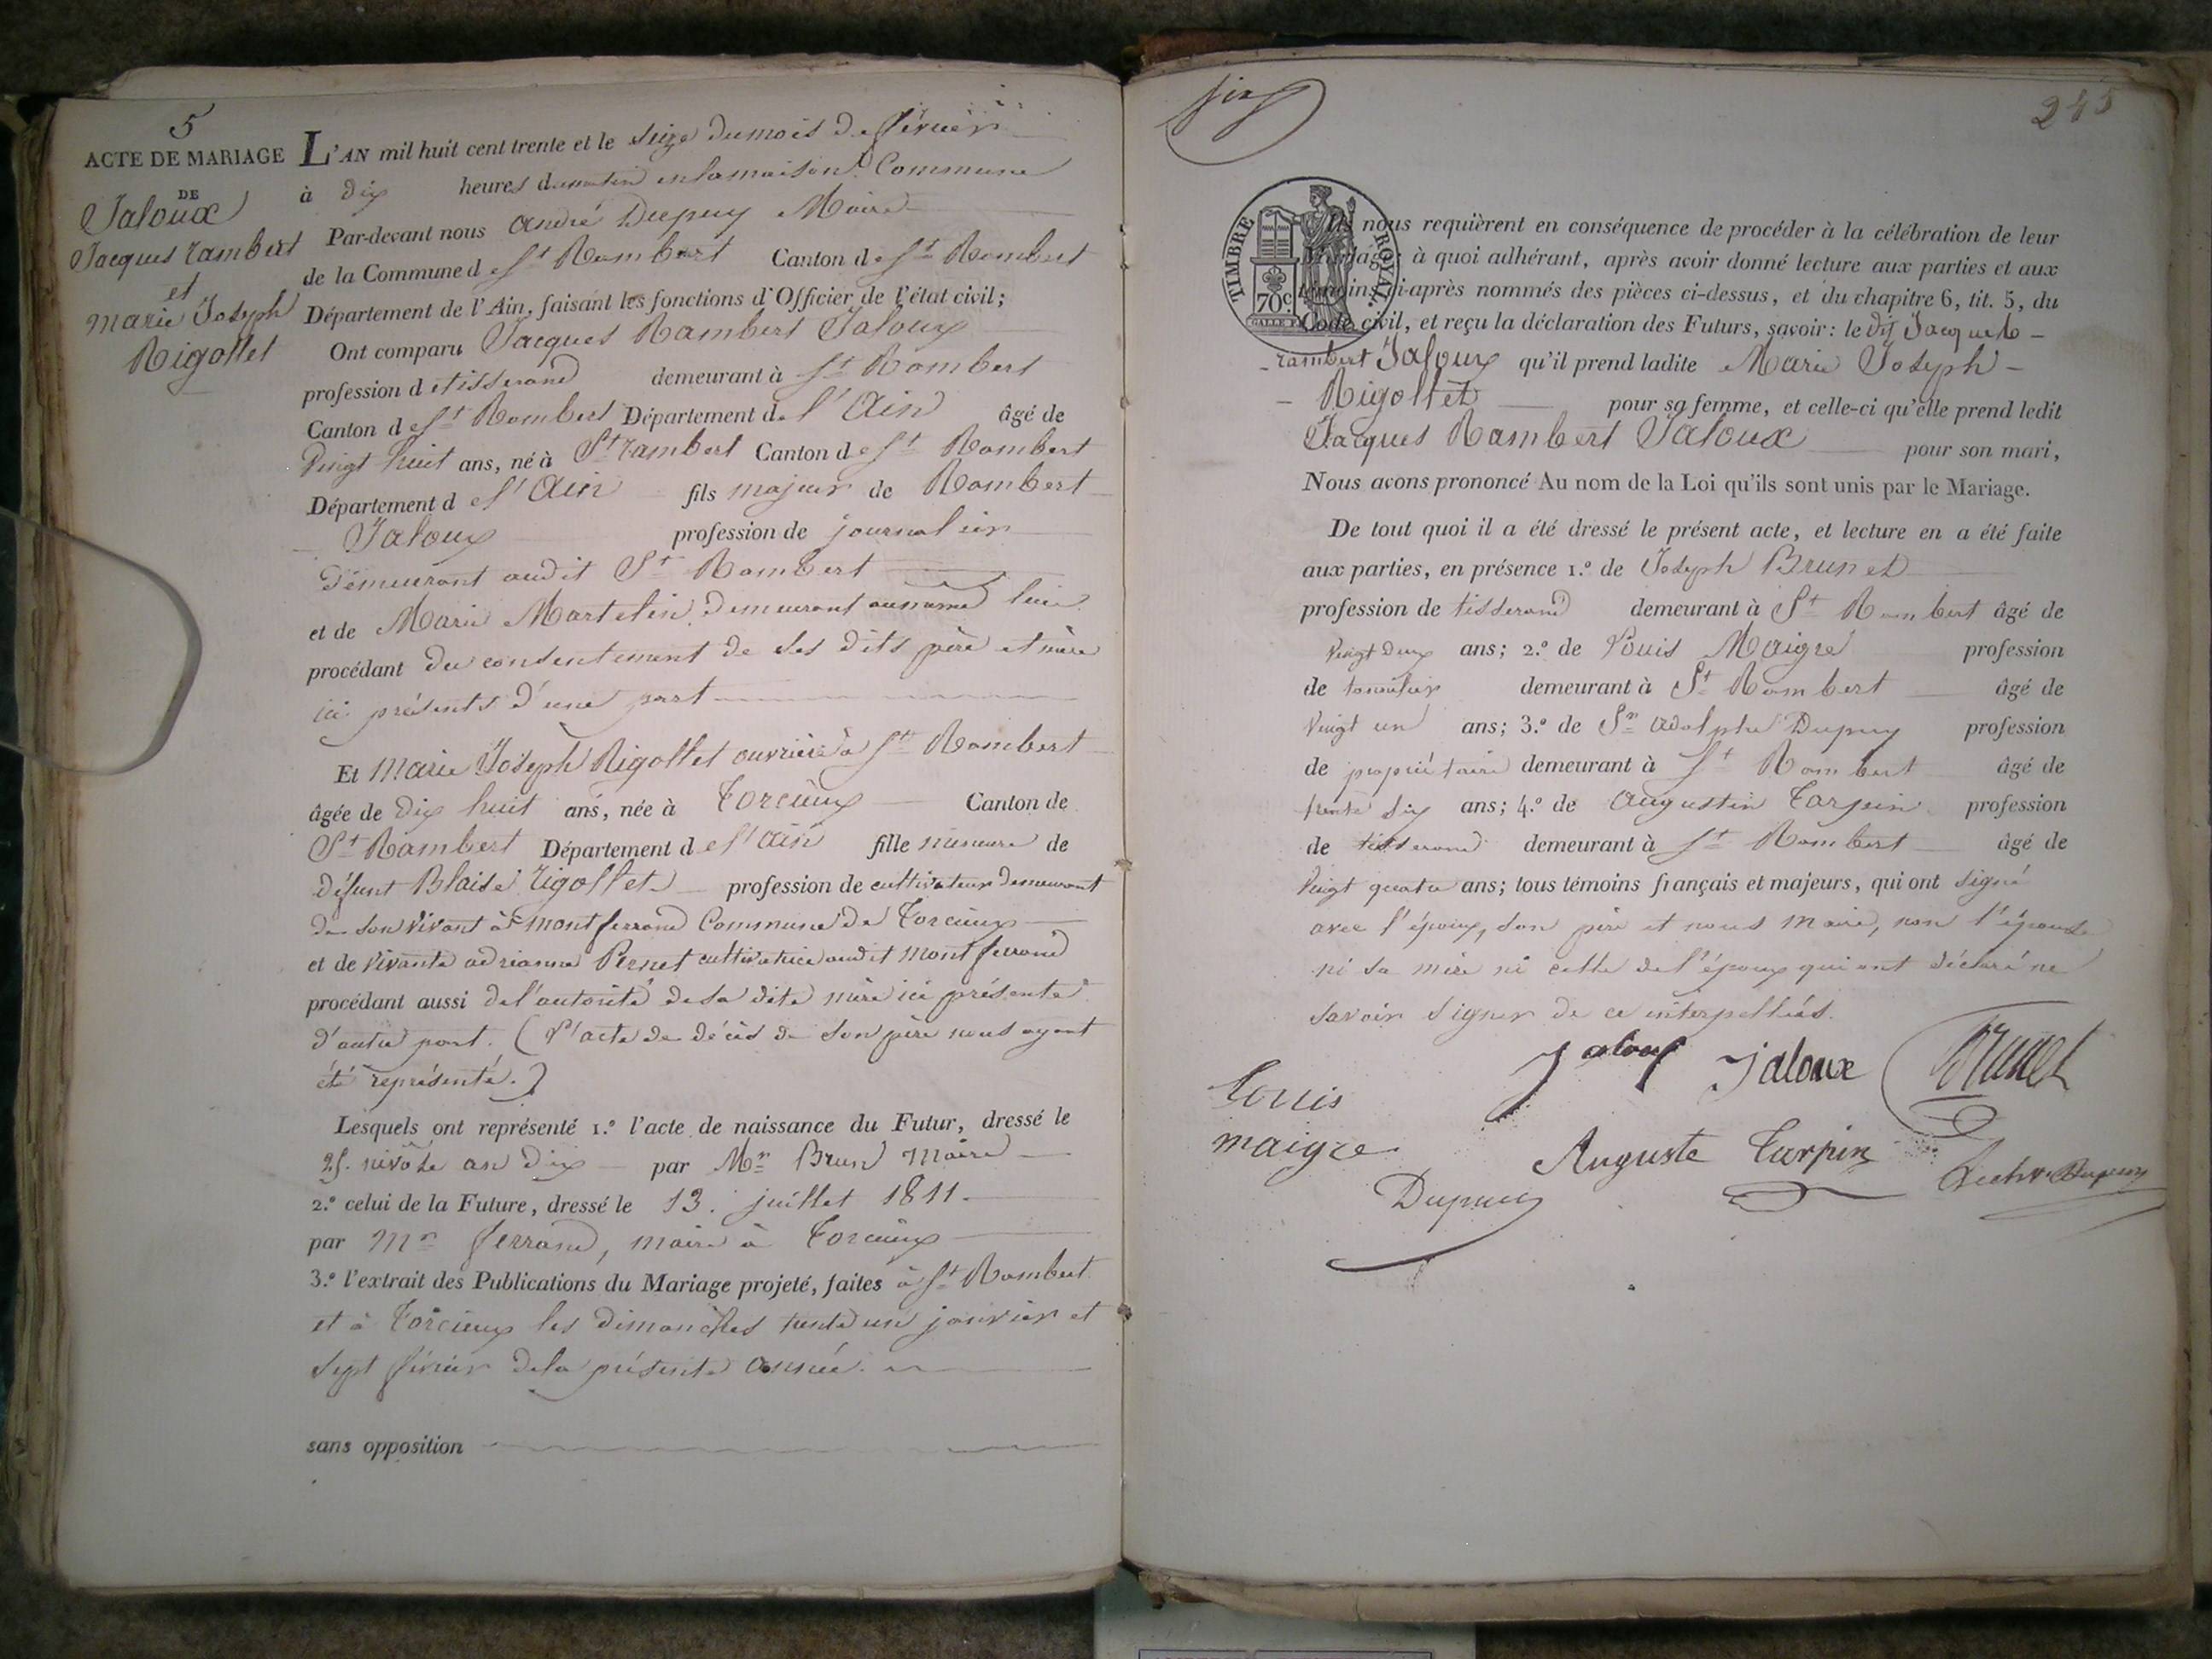 5
ACTE DE MARIAGE
DE
Jaloux
Jacques rambert
et
marie Joseph
Rigollet
L'AN mil huit cent trente et le seize du mois de février
à dix heures du matin en la maison Commune
Par-devant nous andré Dupuy Maire
de la Commune de St Rambert Canton de St Rambert
Département de l'Ain, faisant les fonctions d'Officier de l'état civil;
Ont comparu Jacques Rambert Jaloux
profession de tisserand demeurant à St Rambert
Canton de St Rambert Département de l'Ain âgé de
vingt huit ans, né à St rambert Canton de St Rambert
Département de l'Ain fils majeur de Rambert
Jaloux profession de journalier
demeurant audit St Rambert
et de Marie Martelin demeurant au même lieu
procédant du consentement de ses dits père et mère
ici présents d'une part
Et marie Joseph Rigollet ouvrière à St Rambert
âgée de dix huit ans, née à Torcieux Canton de
St Rambert Département de l'ain fille mineure de
défunt Blaise rigollet profession de cultivateur demeurant
de son vivant à montferrand Commune de Torcieux
et de vivante adrianne Pernet cultivatrice audit montferrand
procédant aussi de l'autorité de sa dite mère ici présente
d'autre part. (l'acte de décès de son père nous ayant
été représenté.)
Lesquels ont représenté 1.º l'acte de naissance du Futur, dressé le
25. nivôse an dix par Mr Brun Maire
2.º celui de la Future, dressé le 13. juillet 1811
par Mr ferrand, maire à Torcieux
3.º l'extrait des Publications du Mariage projeté, faites à St Rambert
et à Torcieux les dimanches trente un janvier et
sept février de la présente année.
sans opposition
six
245
TIMBRE ROYAL.
70c.
Ils nous requièrent en conséquence de procéder à la célébration de leur
Mariage: à quoi adhérant, après avoir donné lecture aux parties et aux
témoins ci-après nommés des pièces ci-dessus, et du chapitre 6, tit. 5, du
Code civil, et reçu la déclaration des Futurs, savoir: le dit Jacques
rambert Jaloux qu'il prend ladite Marie Joseph
Rigollet pour sa femme, et celle-ci qu'elle prend ledit
Jacques Rambert Jaloux pour son mari,
Nous avons prononcé Au nom de la Loi qu'ils sont unis par le Mariage.
De tout quoi il a été dressé le présent acte, et lecture en a été faite
aux parties, en présence 1.º de Joseph Brunet
profession de tisserand demeurant à St Rambert âgé de
vingt deux ans; 2.º de Louis Maigre profession
de tonnelier demeurant à St Rambert âgé de
vingt un ans; 3.º de Sr adolphe Dupuy profession
de propriétaire demeurant à St Rambert âgé de
trente six ans; 4.º de augustin Tarpin profession
de tisserand demeurant à St Rambert âgé de
vingt quatre ans; tous témoins français et majeurs, qui ont signé
avec l'époux, son père et nous maire, non l'épouse
ni sa mère ni celle de l'époux qui ont déclaré ne
savoir signer de ce interpellés.
Jaloux Jaloux Brunet
Louis
maigre
Auguste Tarpin
Dupuy